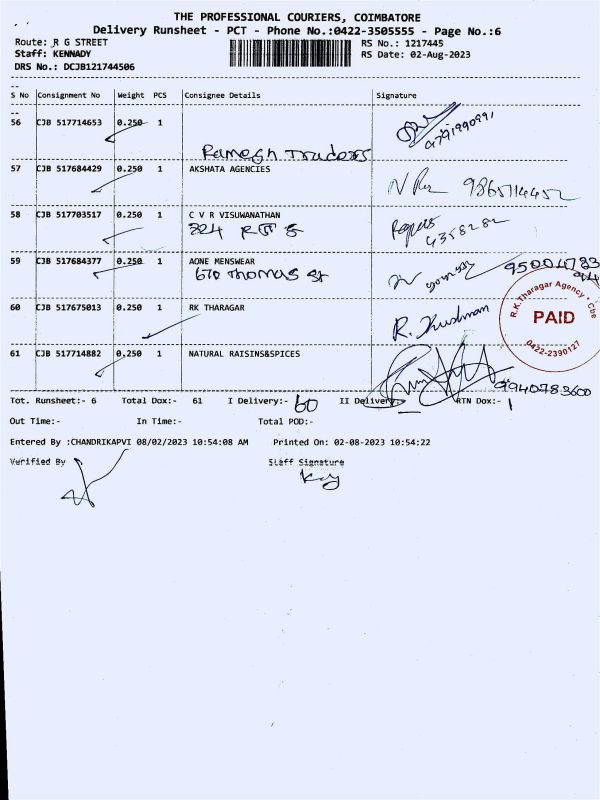 THE PROFESSIONAL COURIERS, COIMBATORE
Delivery Runsheet - PCT - Phone No.:0422-3505555 - Page No.:6
Route: R G STREET
Staff: KENNADY
DRS No.: DCJB121744506
RS No.: 1217445
RS Date: 02-Aug-2023
S No Consignment No Weight PCS Consignee Details Signature
56 CJB 517714653 0.250 1
Ramesh Traders
9791990991
57 CJB 517684429 0.250 1 AKSHATA AGENCIES
9865114452
58 CJB 517703517 0.250 1 C V R VISUWANATHAN
324 R G S
4358282
59 CJB 517684377 0.250 1 AONE MENSWEAR
670 Thomas St
60 CJB 517675013 0.250 1 RK THARAGAR
R.K.Tharagar Agency • Cbe
PAID
0422-2390127
61 CJB 517714882 0.250 1 NATURAL RAISINS&SPICES
9940783600
Tot. Runsheet:- 6 Total Dox:- 61 I Delivery:- 60 II Delivery:- RTN Dox:- 1
Out Time:- In Time:- Total POD:-
Entered By :CHANDRIKAPVI 08/02/2023 10:54:08 AM Printed On: 02-08-2023 10:54:22
Verified By Staff Signature